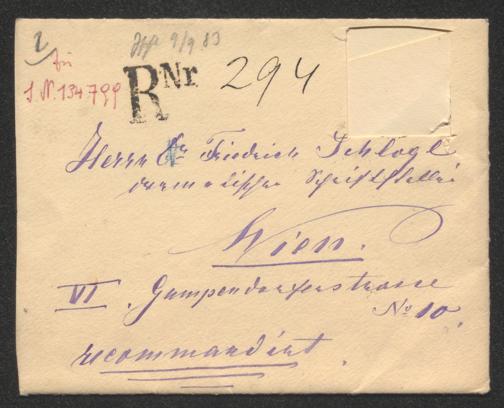 9/9 83
2
für
I.N. 134799
R Nr 294
Herrn Dr Friedrich Schlögl
dramatischer Schriftsteller
Wien.
VI. Gumpendorferstrasse
No 10.
recommandirt.